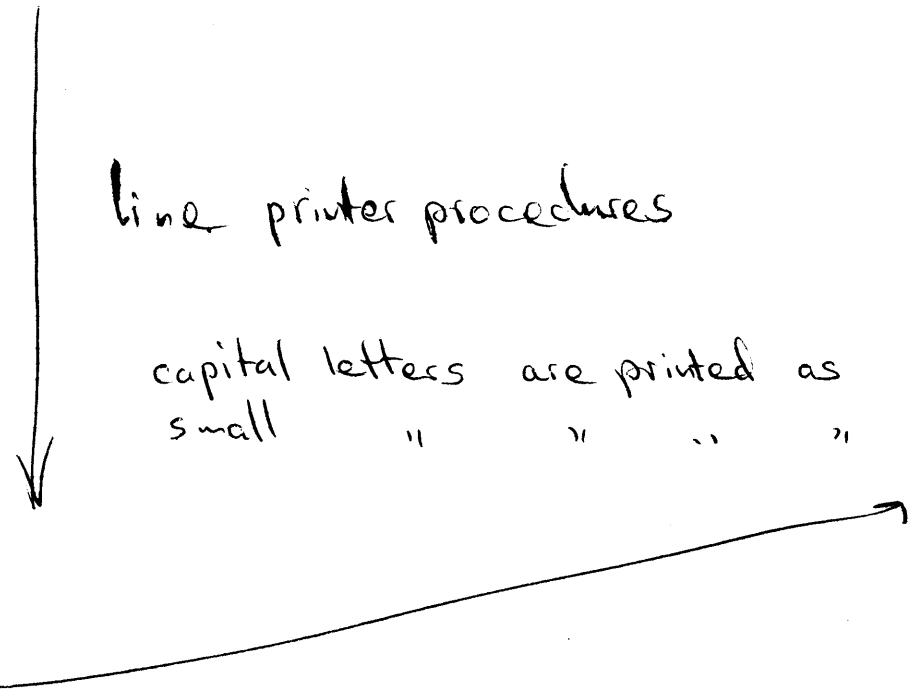 line printer procedures
capital letters are printed as
small " " " "